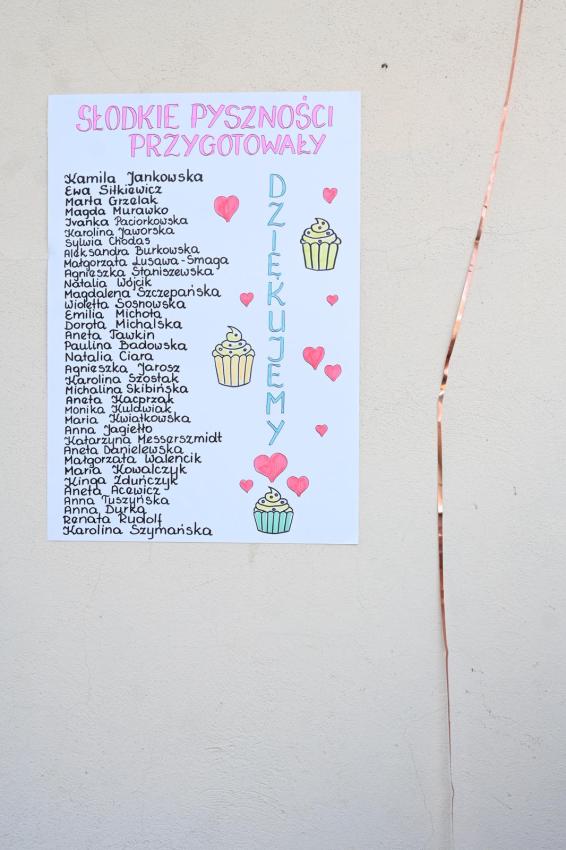 SŁODKIE PYSZNOŚCI
PRZYGOTOWAŁY
Kamila Jankowska
Ewa Siłkiewicz
Marta Grzelak
Magda Murawko
Ivanka Paciorkowska
Karolina Jaworska
Sylwia Chodas
Aleksandra Burkowska
Małgorzata Lusawa-Smaga
Agnieszka Staniszewska
Natalia Wójcik
Magdalena Szczepańska
Wioletta Sosnowska
Emilia Michota
Dorota Michalska
Aneta Tawkin
Paulina Badowska
Natalia Ciara
Agnieszka Jarosz
Karolina Szostak
Michalina Skibińska
Aneta Kacprzak
Monika Kuldwiak
Maria Kwiatkowska
Anna Jagiełło
Katarzyna Messerszmidt
Aneta Danielewska
Małgorzata Walencik
Maria Kowalczyk
Kinga Zduńczyk
Aneta Acewicz
Anna Tuszyńska
Anna Durka
Renata Rudolf
Karolina Szymańska
DZIĘKUJEMY